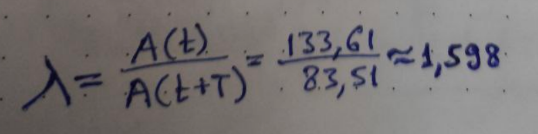 λ = A(t) / A(t+T) = 133,61 / 83,51 ≈ 1,598